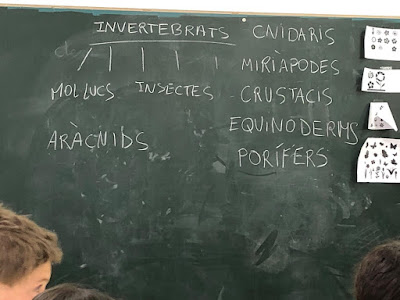 INVERTEBRATS
MOL·LUCS INSECTES
ARÀCNIDS
CNIDARIS
MIRIÀPODES
CRUSTACIS
EQUINODERMS
PORÍFERS